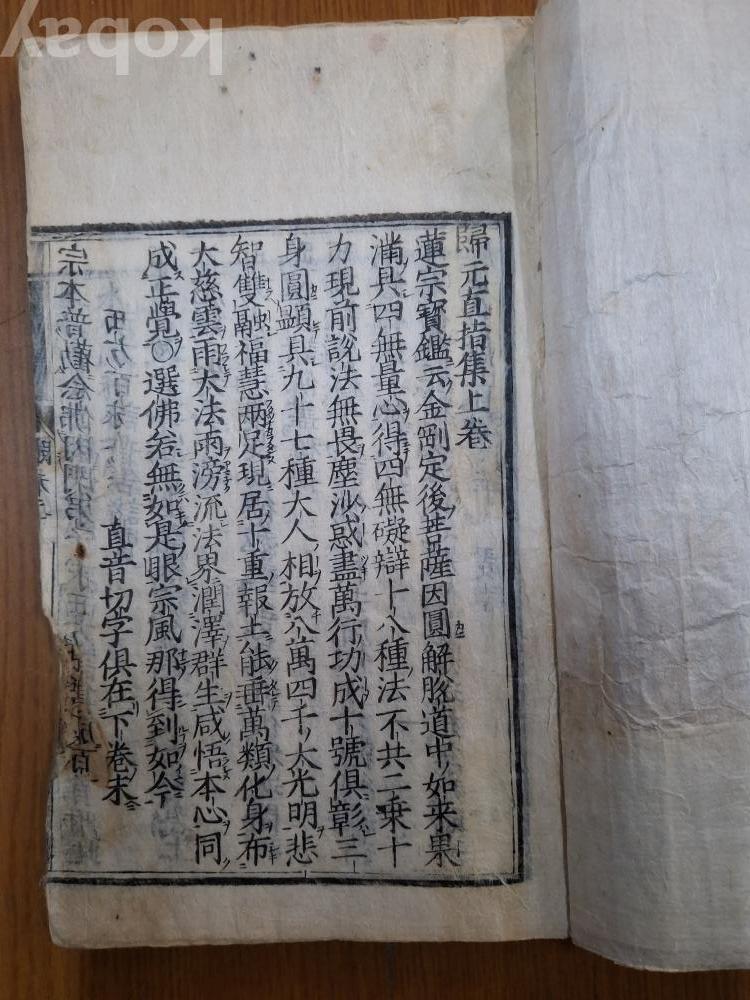 歸元直指集上卷
蓮宗寶鑑云金剛定後菩薩因圓解脫道中如来果
滿具四無量心得四無礙辯十八種法不共二乗十
力現前說法無畏塵沙惑盡萬行功成十號俱彰三
身圓顯具九十七種大人相放八萬四千大光明悲
智雙融福慧兩足現居十重報土能垂萬類化身布
大慈雲雨大法雨滂流法界潤澤群生咸悟本心同
成正覺○選佛若無如是眼宗風那得到如今
直音切字俱在下卷末
宗本普勸念佛
kobay